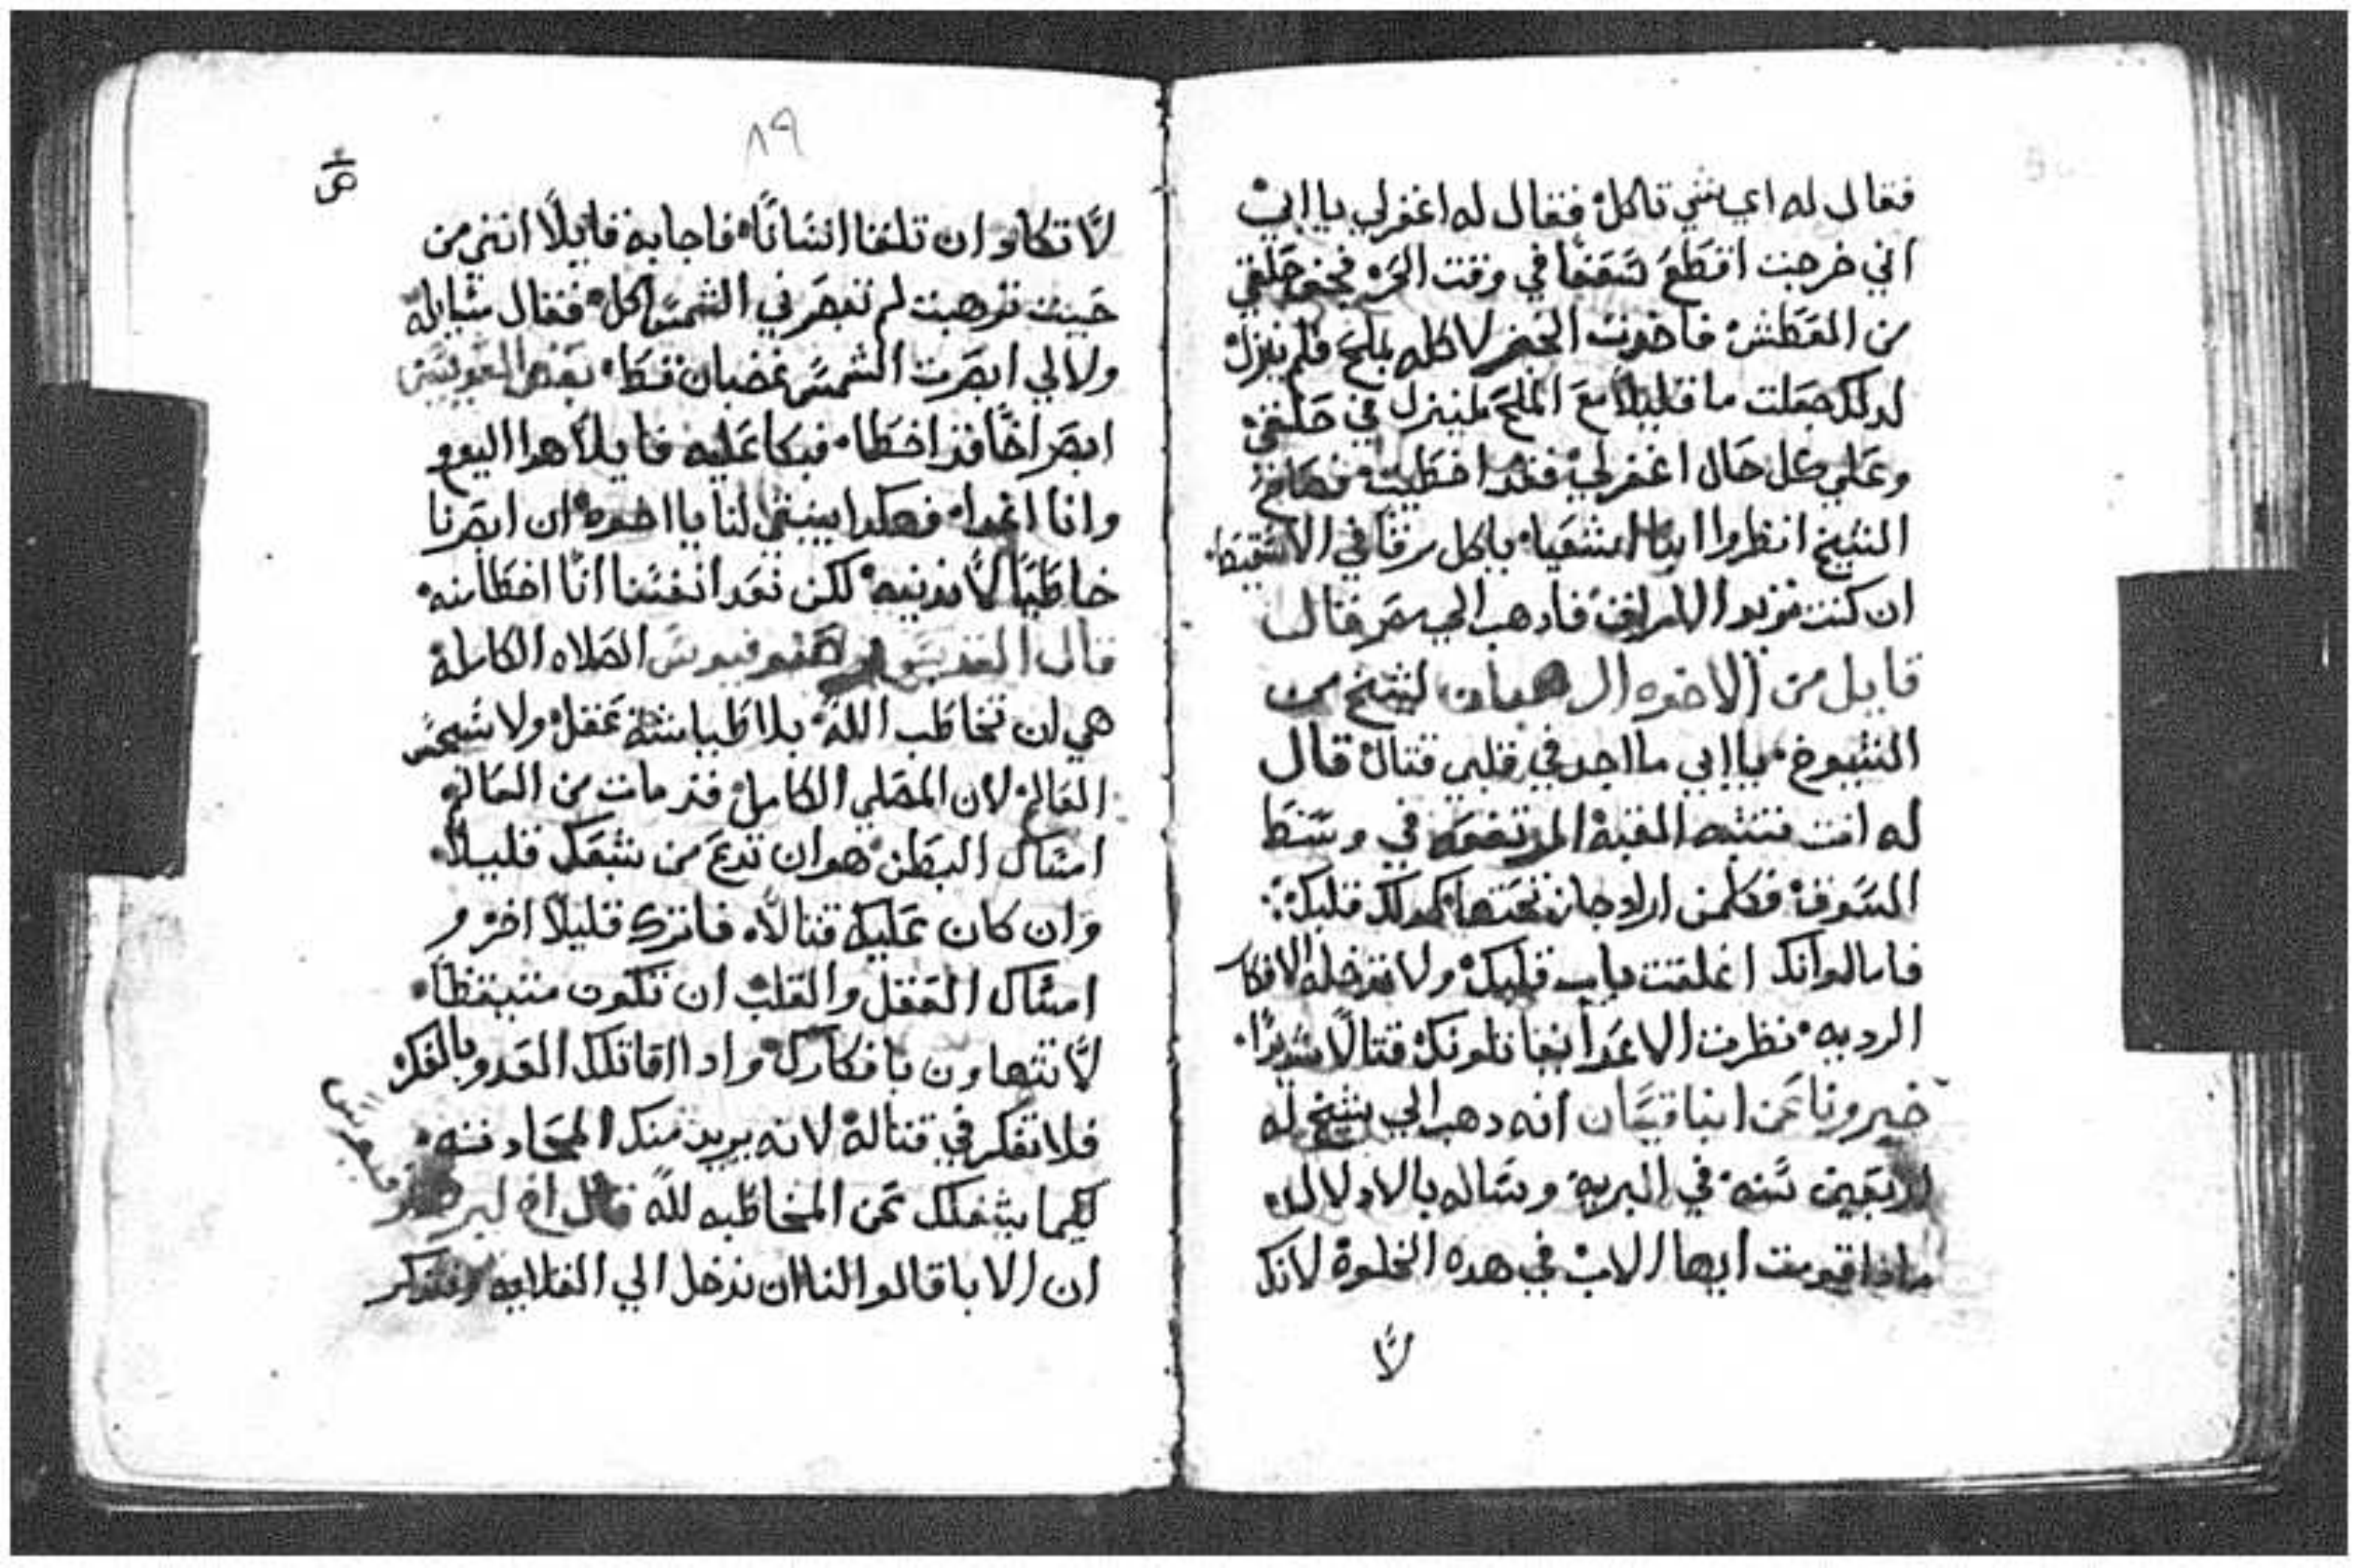 فقال له اي شي تاكل فقال له اغفر لي يا ابي
اني خرجت اقطع سعفا في وقت الحر فجف حلقي
من العطش فاخدت الخبز لاكله بملح فلم ينزل
لدلك جعلت ما قليلا مع الملح لينزل في حلقي
وعلي كل حال اغفر لي فقد اخطيت فصاح
الشيخ انظروا انبا اشعيا ياكل مرقا في الاسقيط
ان كنت تريد المرق فادهب الي مصر قال
قايل من الاخوه الرهبان لشيخ من
الشيوخ يا ابي ما اجد في قلبي قتال قال
له انت تشبه القبة المرتفعه في وسط
السوق فكلمن اراد جاز تحتها كدلك قلبك
فاما لو انك اغلقت باب قلبك ولا تدخله الافكار
الرديه نظرت الاعدا يقاتلونك قتالا شديدا
خبرونا عن انبا قيان انه دهب الي شيخ له
اربعين سنه في البريه وساله بالادلال
مادا قومت ايها الاب في هده الخلوة لانك
لا
٨٩
لا تكاد ان تلقا انسانا فاجابه قايلا انني من
حيث ترهبت لم تبصرني الشمس اكل فقال شابله
ولا لي ابصرت الشمس غضبان قط بعض القديسين
ابصر اخا قد اخطا فبكا عليه قايلا هدا اليوم
وانا غدا فهكدا ينبغي لنا يا اخوه ان ابصرنا
خاطيا لا ندينه لكن نعد انفسنا انا اخطا منه
قال القديس الصلاه الكاملة
هي ان تخاطب الله بلا طياشة عقل ولا سجس
العالم لان المصلي الكامل قد مات من العالم
امساك البطن هو ان تدع من شبعك قليلا
وان كان عليك قتالا فاترك قليلا اخر و
امساك العقل والقلب ان تكون متيقظا
لا تتهاون بافكارك وادا قاتلك العدو بالفكر
فلا تفكر في قتاله لانه يريد منك المحادثه
لكيما يشغلك عن المخاطبه لله قال
ان الابا قالوا لنا ان ندخل الي القلايه ونتدكر